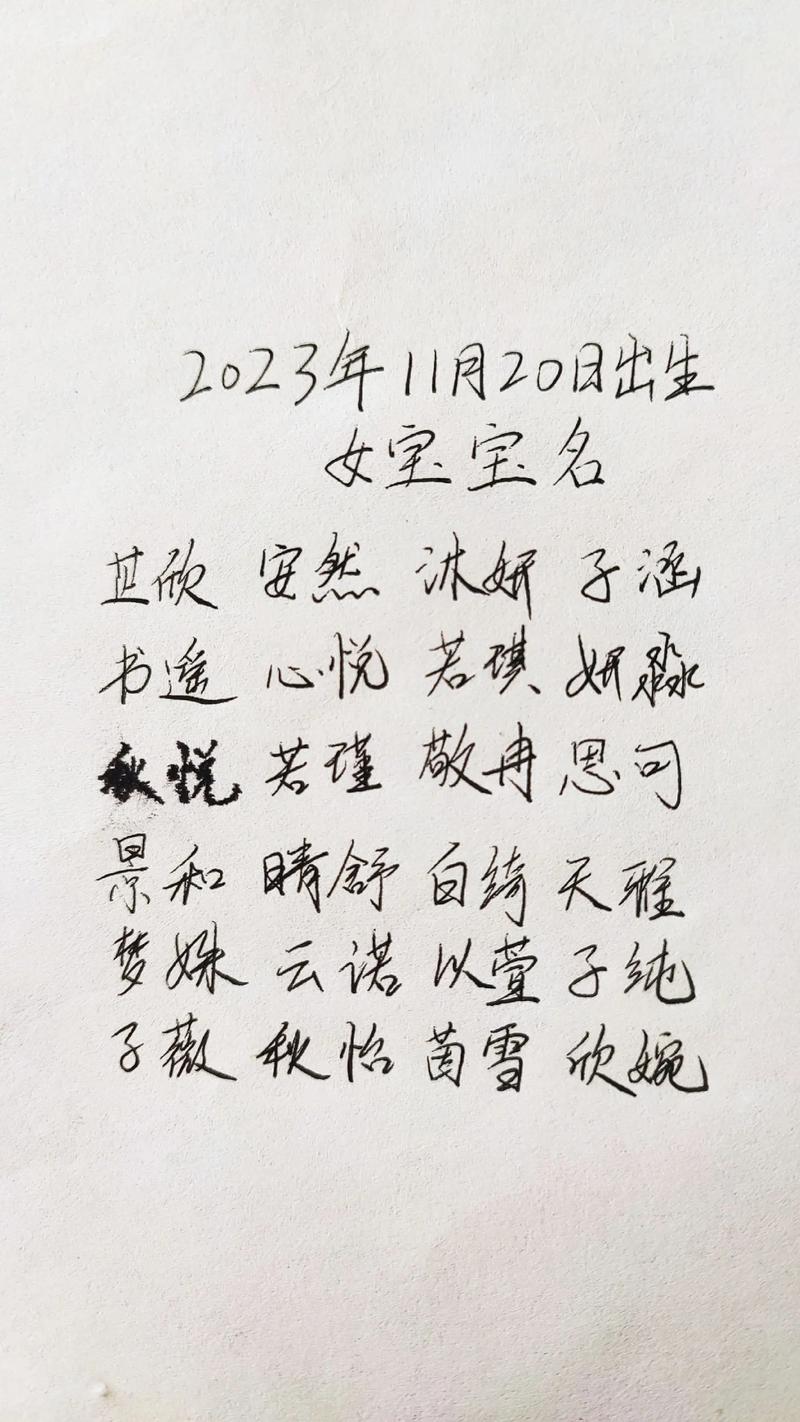 2023年11月20日出生
女宝宝名
芷欣 安然 沐妍 子涵
书遥 心悦 若琪 妍淼
秋悦 若瑾 敬冉 思句
景和 晴舒 白绮 天雅
梦姝 云诺 以萱 子纯
子薇 秋怡 茵雪 欣婉